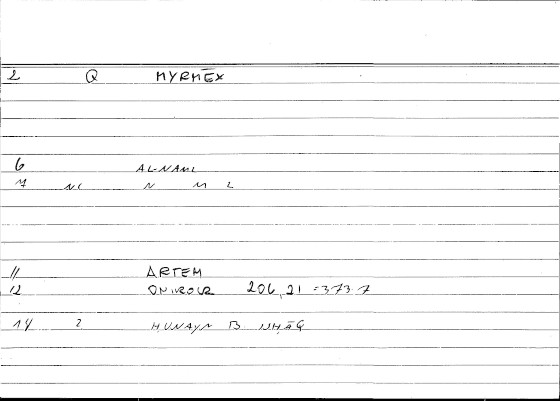 2 Q MYRMĒX
6 AL-NAML
7 NC N M L
11 ARTEM
12 ONIROCR 206,21 = 373.7
14 2 HUNAYN B ISHĀQ